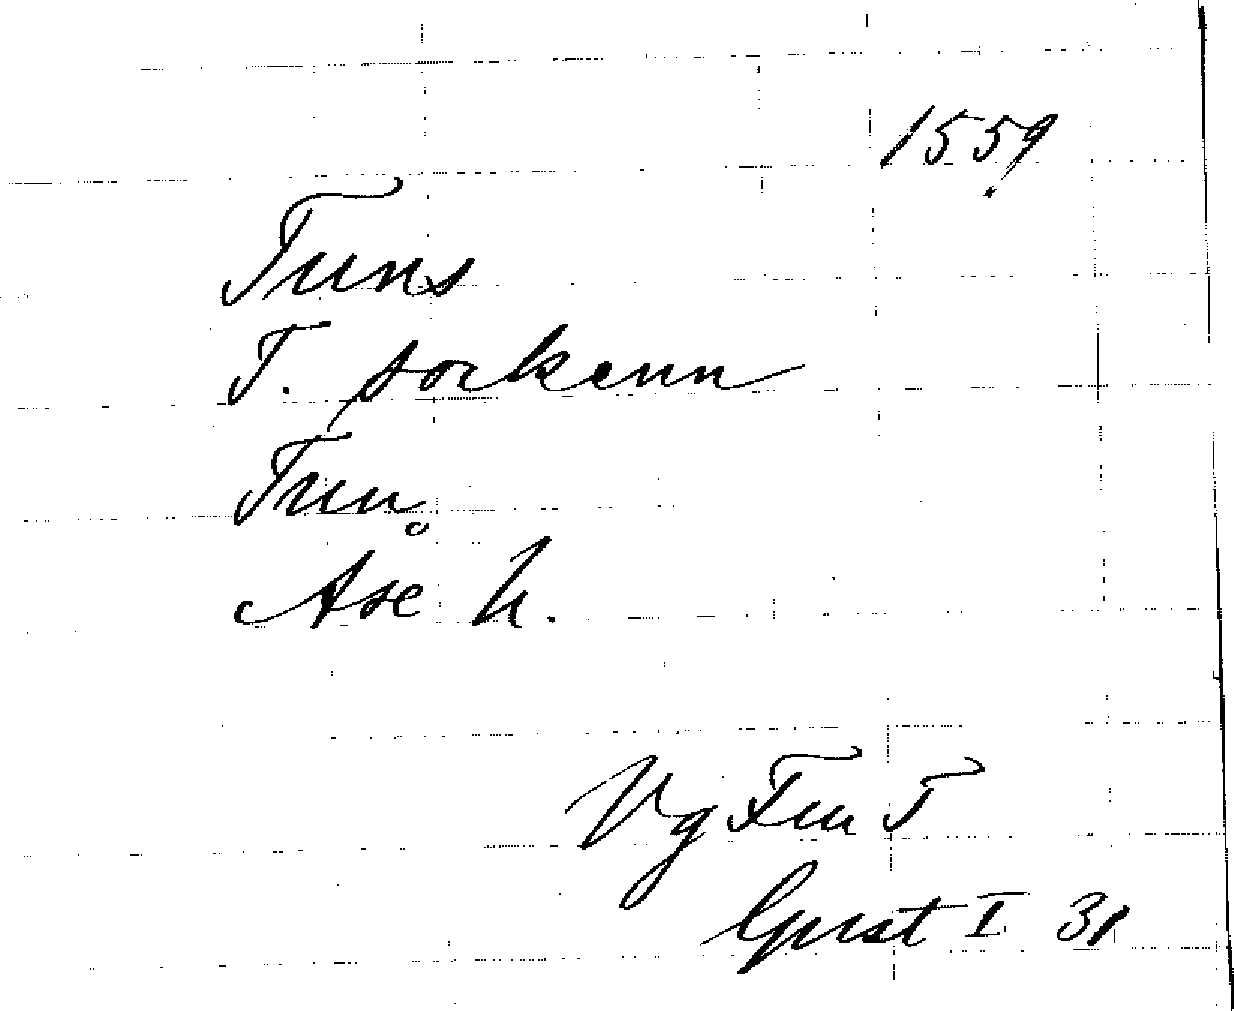 1559
Tuns
T. sockenn
Tun
Åse h.
Vg Fu T
Gust I 31